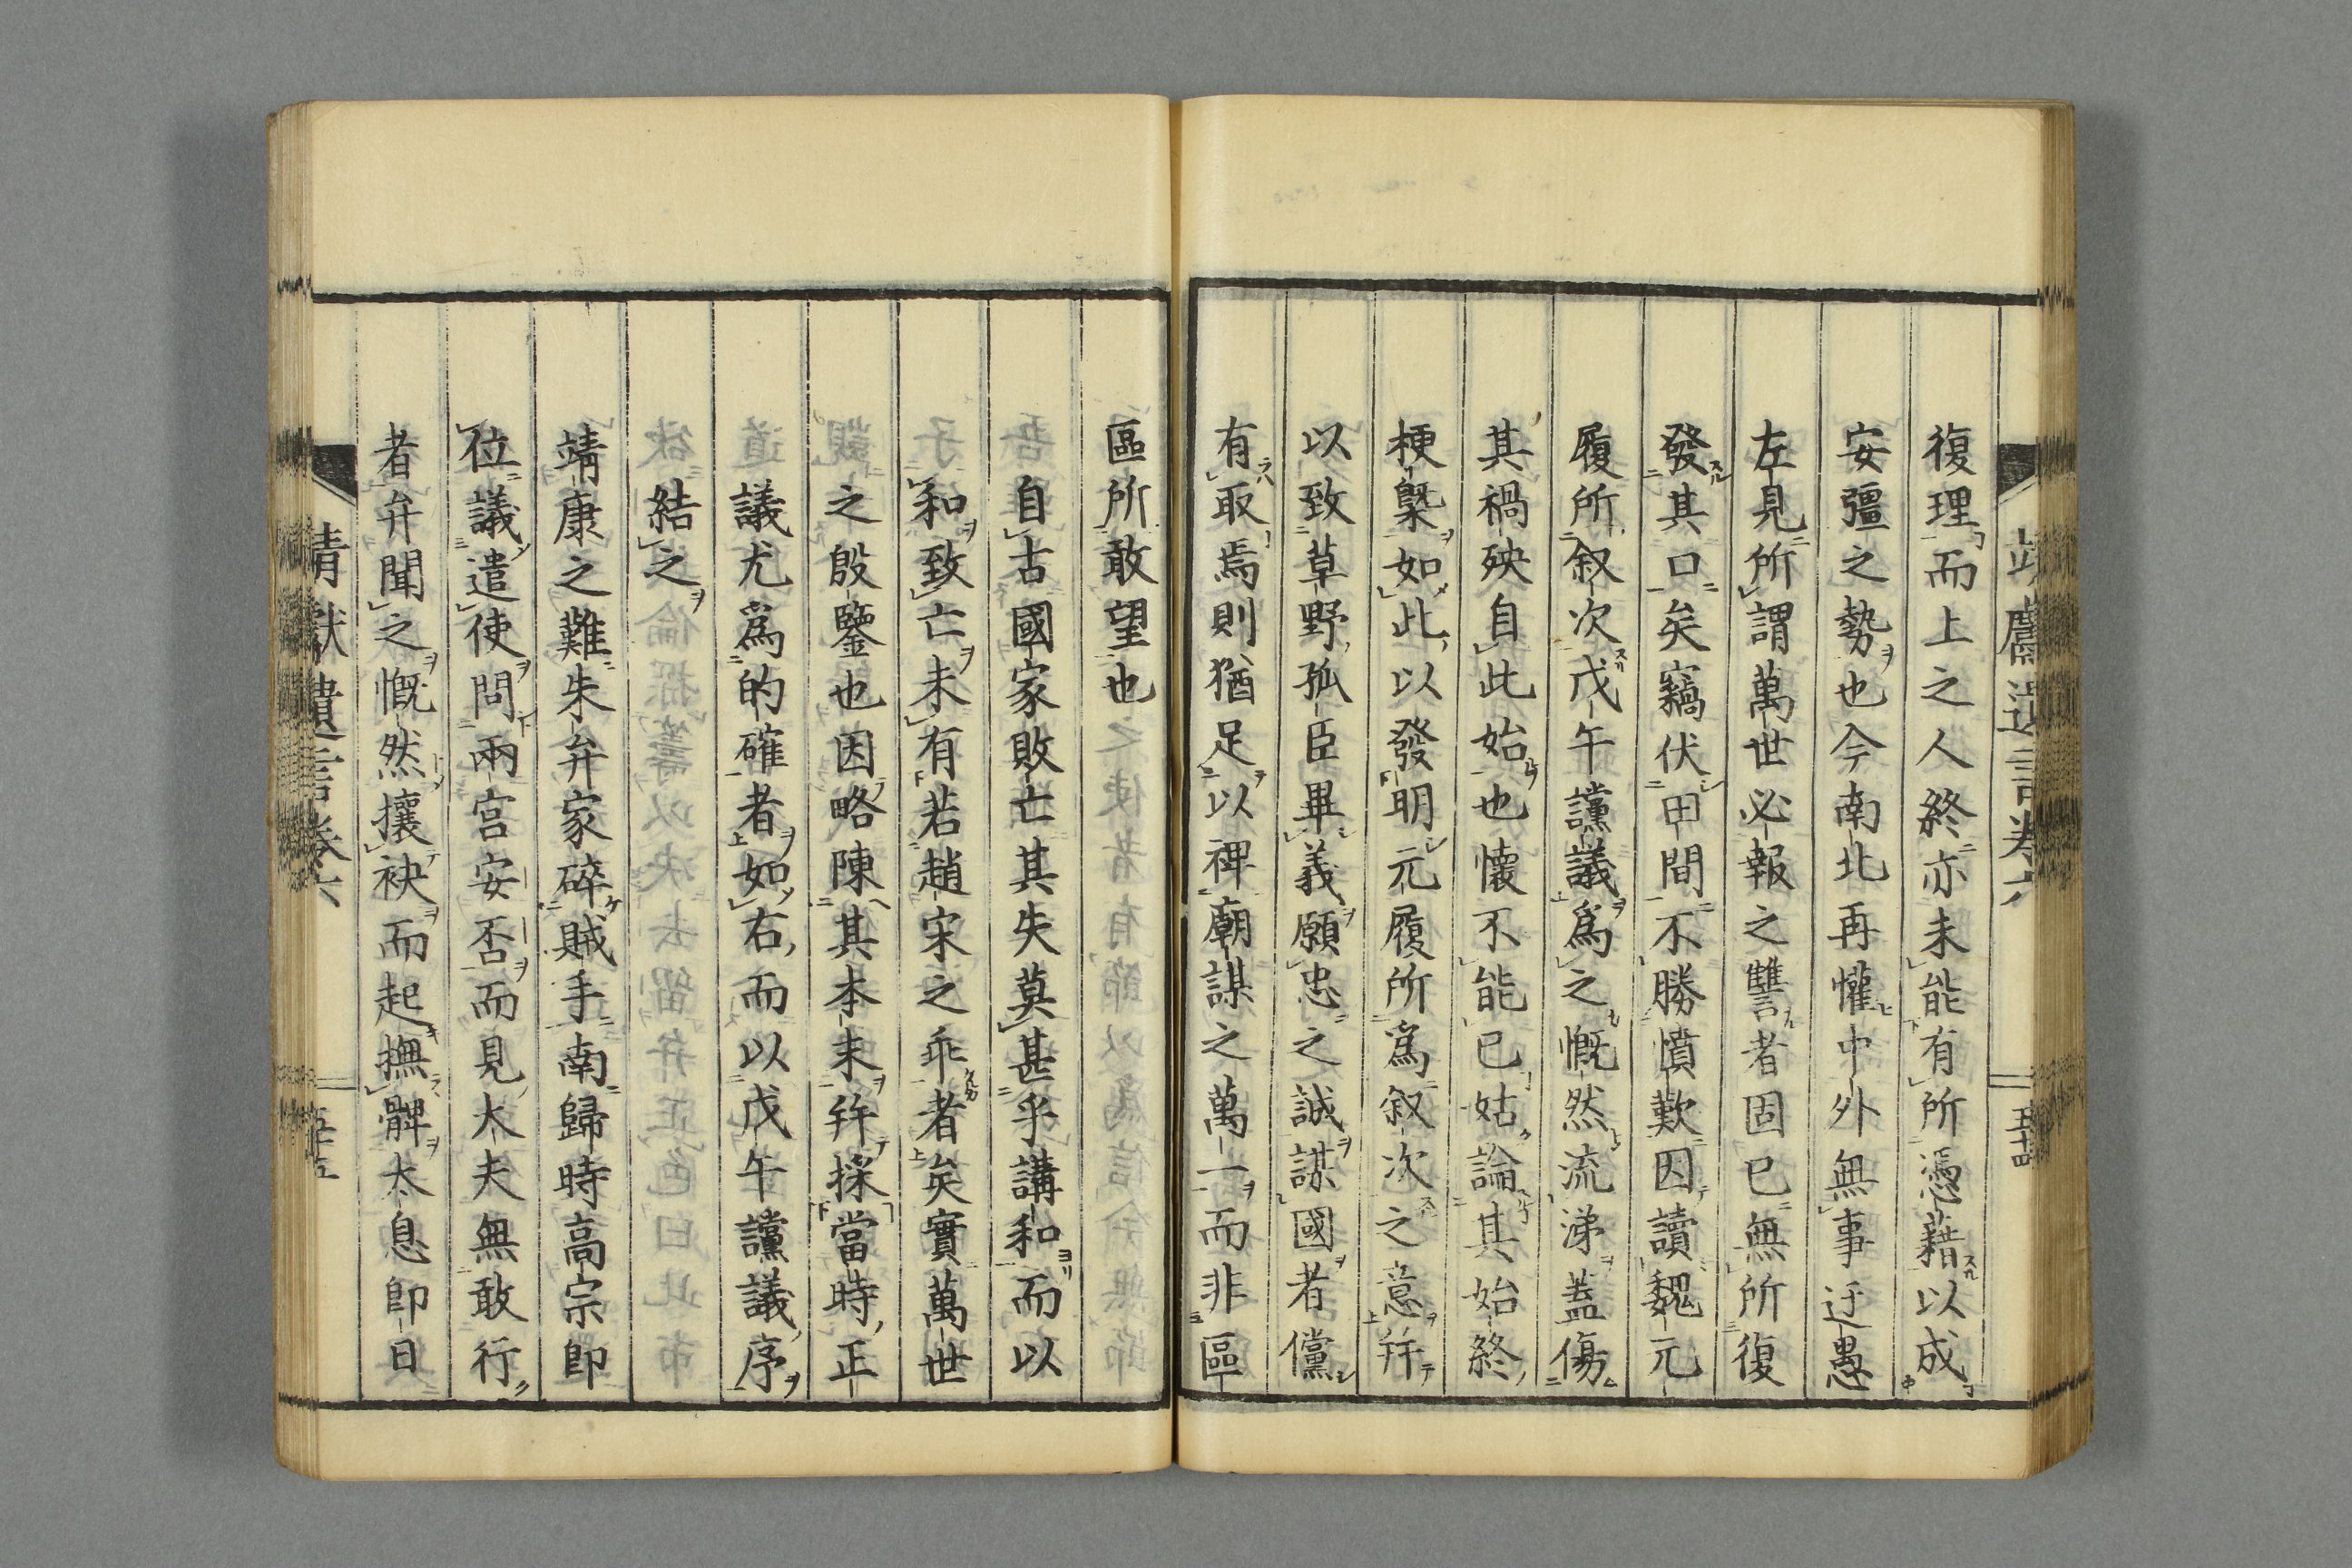 復理而上之人終亦未能有所憑藉以成
安彊之勢也今南北再懽中外無事迂愚
左見所謂萬世必報之讐者固已無所復
發其口矣竊伏田間不勝憤歎因讀魏元
履所叙次戊午讜議爲之慨然流涕蓋傷
其禍殃自此始也懷不能已姑論其始終
梗槩如此以發明元履所爲叙次之意并
以致草野孤臣畢義願忠之誠謀國者儻
有取焉則猶足以裨廟謀之萬一而非區
區所敢望也
自古國家敗亡其失莫甚乎講和而以
和致亡未有若趙宋之乖者矣實萬世
之殷鑒也因略陳其本末并採當時正
議尤爲的確者如右而以戊午讜議序
結之
靖康之難朱弁家碎賊手南歸時高宗即
位議遣使問兩宮安否而見大夫無敢行
者弁聞之慨然攘袂而起撫髀太息即日